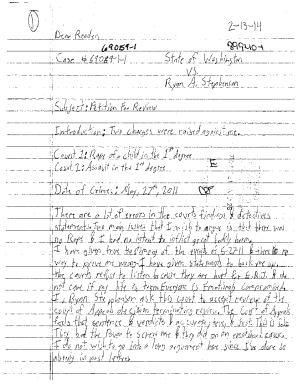 ① 2-13-14
Dear Readers
69059-1 89940-1
Case # 69059-1-I State of Washington
V.S.
Ryan A. Stephenson
Subject: Petition for Review
Introduction: Two charges were raised against me.
Count 1: Rape of a child in the 1st degree.
Count 2: Assault in the 1st degree.
Date of Crimes: May, 27th, 2011
There are a lot of errors in the courts findings & detectives
statements. Two main issues that I wish to argue is that there was
no Rape & I had no intent to inflict great bodily harm.
I have given true testimony of the events of
the courts refuse to listen
care if my life is Emotionally Compromised.
I, Ryan Stephenson ask this court to accept review of the
court of Appeals decision terminating review. The Court of Appeals
feels that sentence & verdict
They had the Power to screw me & they did on an emotional cause.
I do not wish to go into a long argument here since I've done so
already in past letters.